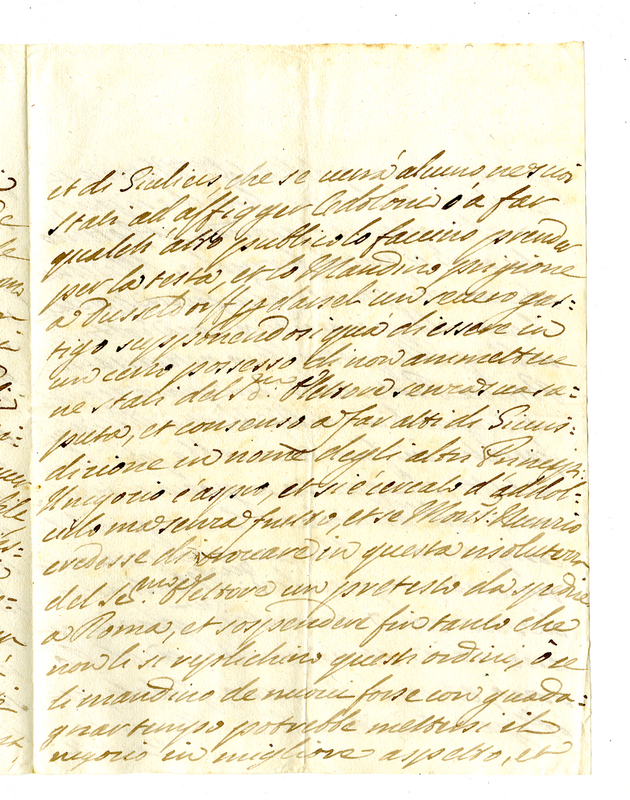 et di Giuliers, che se verrà alcuno ne suoi
stati ad affigger Cedoloni ò a far
qualch'altro publico lo faccino prender
per la testa, et lo Mandino prigione
a Dusseldorf p darseli un severo gas=
tigo supponendosi quà di essere in
un certo possesso di non ammettere
ne stati del S. Elettore senza sua sa=
puta, et consenso a far atti di Giuris=
dizione in nome degli altri Principi.
Il negozio è aspro, et si è cercato d'addol=
cirlo ma senza frutto, et se Mons. Nunzio
credesse di trovare in questa risolutezza
del Ser.mo Elettore un pretesto da spedire
a Roma, et sospendere fin tanto che
non li si replichino questi ordini, ò se
li mandino de nuovi forse con guada=
gnar tempo potrebbe mettersi il
negozio in migliore aspetto, et